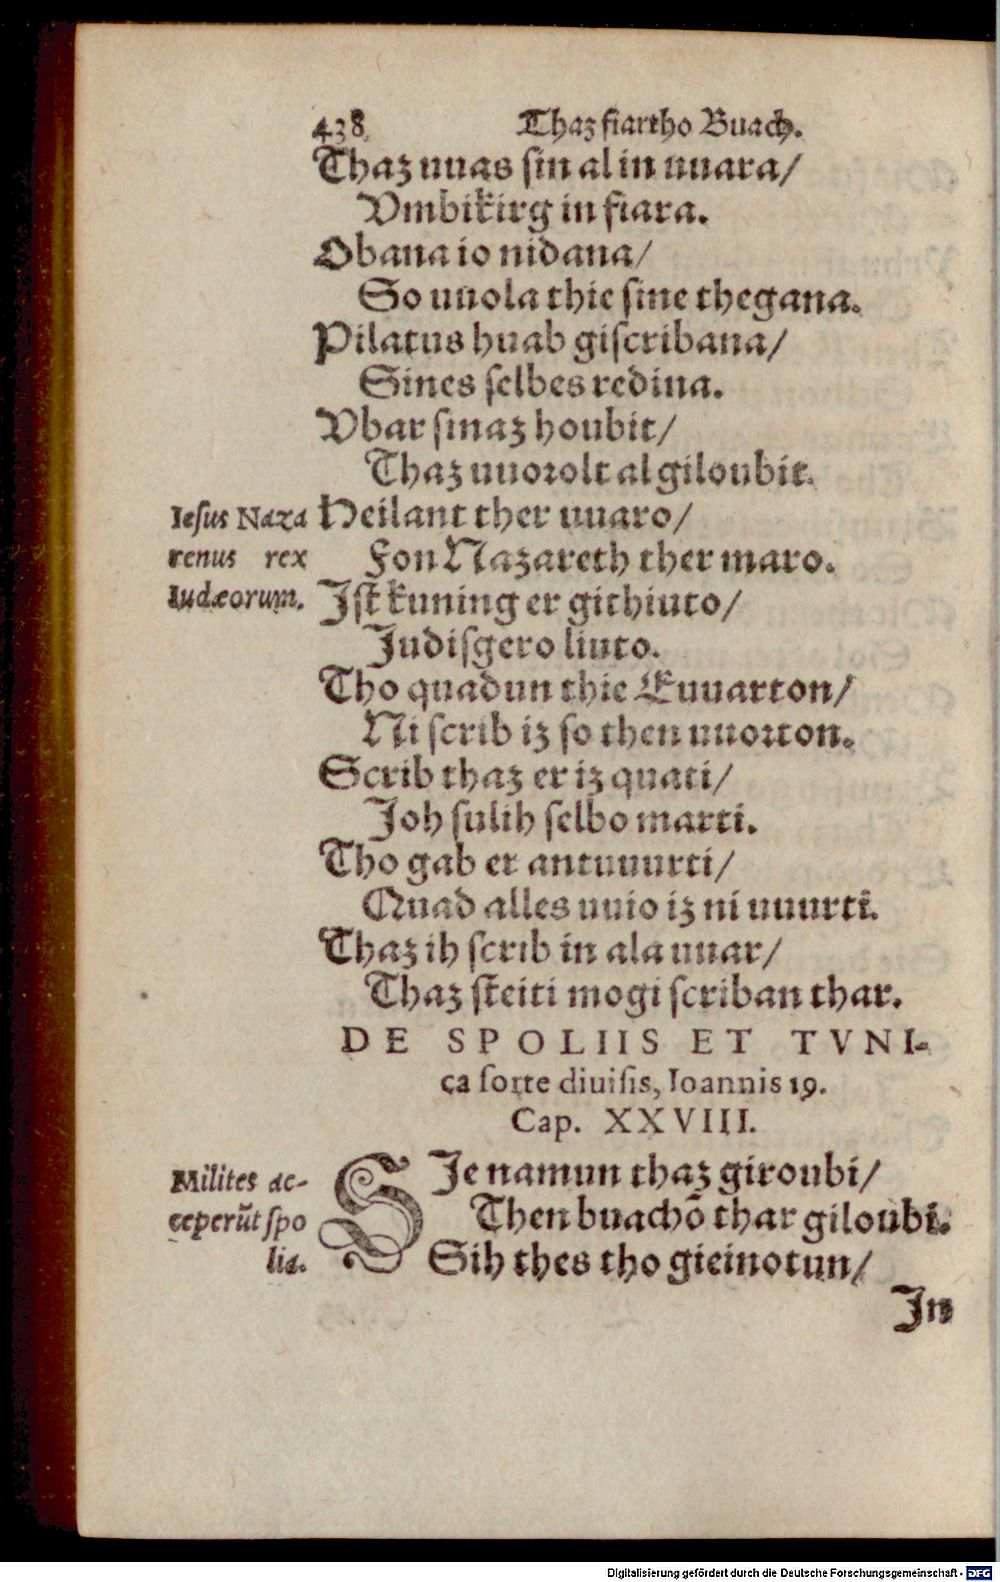 438 Thaz fiartho Buach.
Thaz uuas sin al in uuara/
Vmbikirg in fiara.
Obana io nidana/
So uuola thie sine thegana.
Pilatus huab giscribana/
Sines selbes redina.
Vbar sinaz houbit/
Thaz uuorolt al giloubit.
Iesus Naza Heilant ther uuaro/
renus rex Fon Nazareth ther maro.
Iudæorum. Ist kuning er githiuto/
Judisgero liuto.
Tho quadun thie Euuarton/
Ni scrib iz so then uuorton.
Scrib thaz er iz quati/
Joh sulih selbo marti.
Tho gab er antuuurti/
Quad alles uuio iz ni uuurti.
Thaz ih scrib in ala uuar/
Thaz steiti mogi scriban thar.
DE SPOLIIS ET TVNI-
ca sorte diuisis, Ioannis 19.
Cap. XXVIII.
Milites ac- SJe namun thaz giroubi/
ceperũt spo Then buachõ thar giloubi.
lia. Sih thes tho gieinotun/
Jn
Digitalisierung gefördert durch die Deutsche Forschungsgemeinschaft - DFG